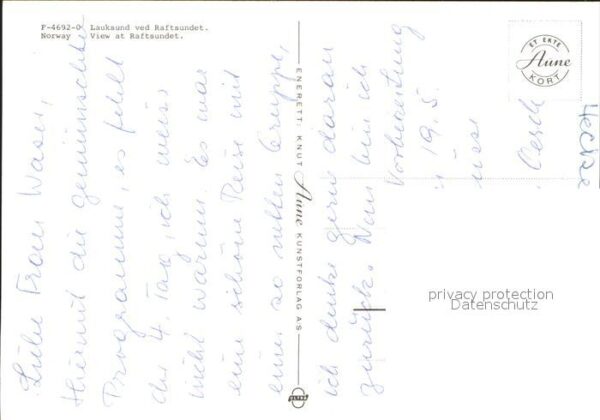 F-4692-0 Lauksund ved Raftsundet.
Norway View at Raftsundet.
ET EKTE
Aune
KORT
ENERETT: KNUT Aune KUNSTFORLAG AS
Liebe Frau Waser,
Hiermit die gewünschten
Programme, es fehlt
der 4. Tag, ich weiss
nicht warum. Es war
eine schöne Reise mit
einer so netten Gruppe,
ich denke gerne daran
zurück. Nun bin ich
Vorbereitung
19. 5.
üsse
Oesch
privacy protection
Datenschutz